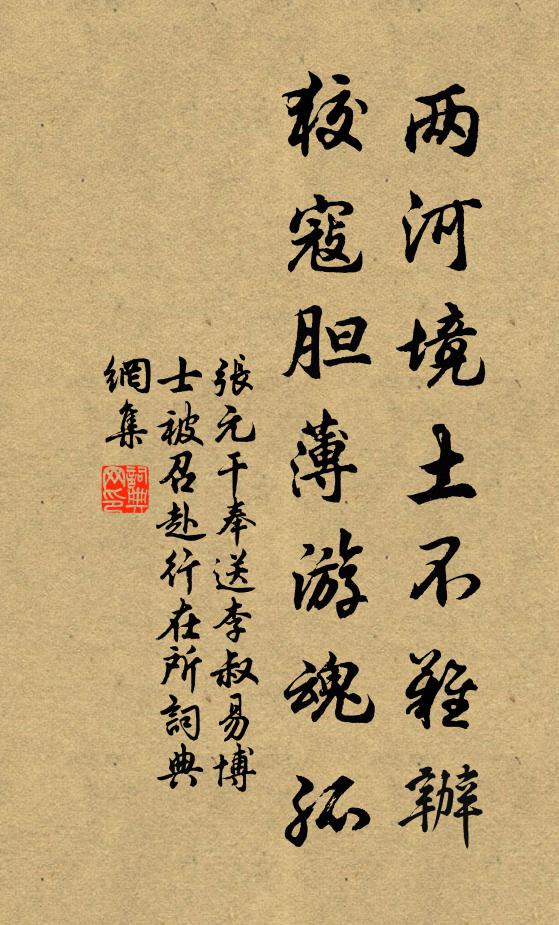 两河境土不难辦
狡寇胆薄游魂孤
張元干奉送李叔易博
士被召赴行在所詞典
網集
詞典
网印